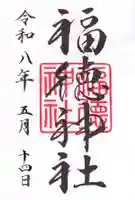 福徳神社
令和八年 五月 十四日